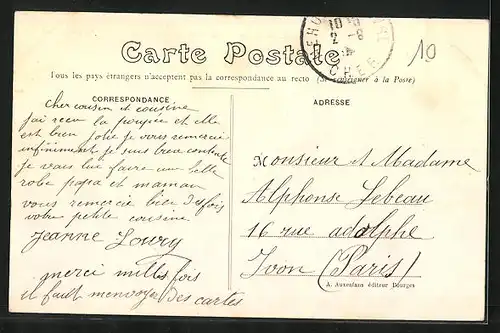 Carte Postale
Tous les pays étrangers n'acceptent pas la correspondance au recto (Se renseigner à la Poste)
CORRESPONDANCE
ADRESSE
10
cher cousin et cousine
jai recu la poupée et elle
est bien jolie je vous remercie
infiniment je suis bien contente
je vais lui faire une belle
robe papa et maman
vous remercie bien des fois
votre petite cousine
Jeanne Loury
merci milles fois
il faut menvoyer des cartes
Monsieur et Madame
Alphonse Lebeau
16 rue adolphe
Ivon (Paris)
A. Auxenfans éditeur Bourges
CHER